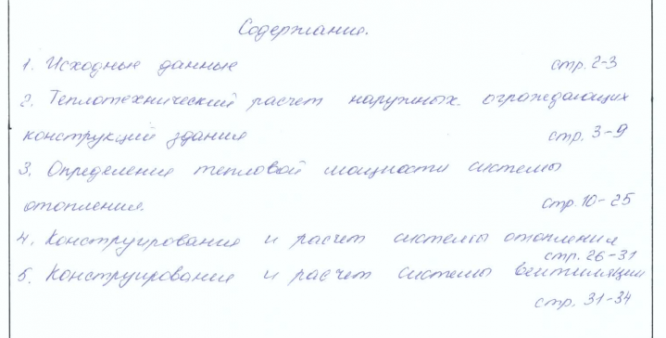 Содержание.
1. Исходные данные стр. 2-3
2. Теплотехнический расчет наружных ограждающих
конструкций здания стр. 3-9
3. Определения тепловой мощности системы
отопления. стр. 10-25
4. Конструирования и расчет системы отопления
стр. 26-31
5. Конструирования и расчет системы вентиляции
стр. 31-34